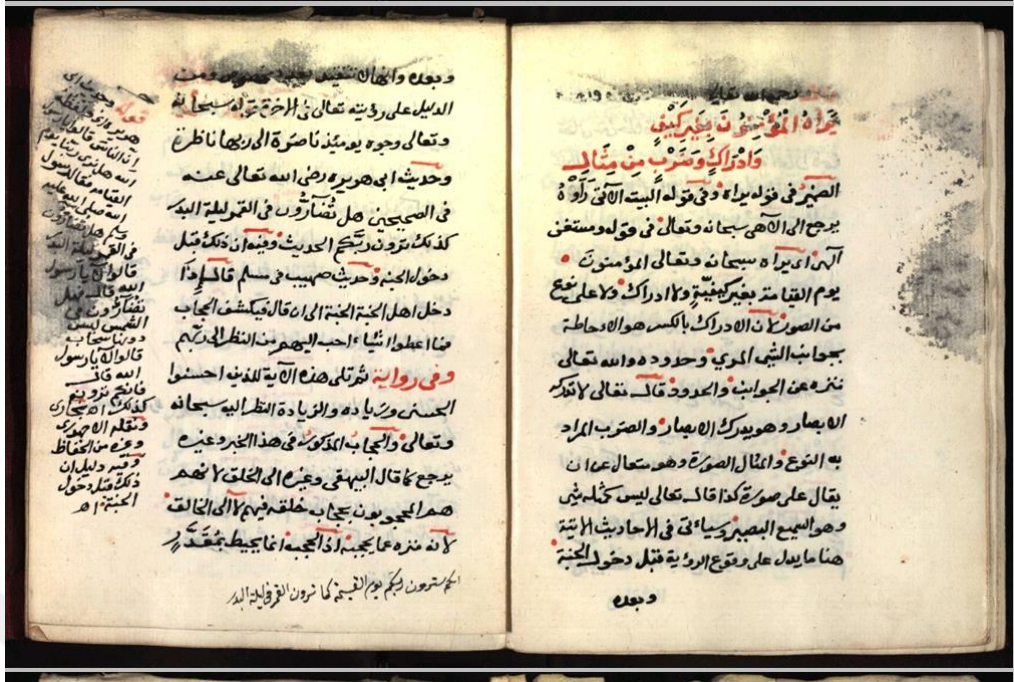 رحمه الله تعالى
يَرَاهُ الْمُؤْمِنُونَ بِغَيْرِ كَيْفٍ
وَادْرَاكٍ وَضَرْبٍ مِنْ مِثَالِ
الضمير في قوله يراه وفي قوله البيته الآتى رَأَوْهُ
يرجع الى الآهى سبحانه وتعالى في قوله ومستغن
الهى اى يراه سبحانه وتعالى المؤمنون
يوم القيامة بغير كيفيّةٍ ولا ادراك ولا على نوع
من الصور لان الادراك بالكسر هو الاحاطة
بجوانب الشئ المرئي وحدوده والله تعالى
تنزه عن الجوانب والحدود قال تعالى لا تدركه
الابصار وهو يدرك الابصار والضرب المراد
به النوع والمثال الصورة وهو متعال عن ان
يقال على صورة كذا قال تعالى ليس كمثله شئ
وهو السميع البصير وسيأتي في الاحاديث الاتية
هنا ما يدل على وقوع الرؤية قبل دخول الجنة
وبعده
وبعده وانها ومن
الدليل على رؤيته تعالى في الاخرة قوله سبحانه
وتعالى وجوه يومئذ ناضرة الى ربها ناظرة
وحديث ابى هريره رضى الله تعالى عنه
في الصحيحين هل تُضَآرُّون في القمر ليلة البدر
كذلك ترون ربّكم الحديث وفيه ان ذلك قبل
دخول الجنه وحديث صهيب في مسلم قال اذا
دخل اهل الجنة الجنة الى ان قال فيكشف الحجاب
فما اعطوا شيئا احب اليهم من النظر الى ربّهم
وفى رواية ثم تلى هذه الآية للذين احسنوا
الحسنى وزياده والزيادة النظر اليه سبحانه
وتعالى والحجاب المذكور في هذا الخبر وغيره
يرجع كما قال البيهقى وغيره الى الخلق لانهم
هم المحجوبون بحجاب خلقه فيهم لا الى الخالق
لانه منزه عما يحجبه اذ الحجب انما يحيط بمُقَدَّرٍ
انكم سترون ربكم يوم القيمة كما ترون القمر ليلة البدر
قوله
وحديث ابى
هريره
ان الناس قالوا يا رسول
الله هل نرى ربنا يوم
القيامه فقال رسول
الله صلى الله عليه
وسلم هل تضارون
في القمر ليلة البدر
قالوا لا يا رسول
الله قال فهل
تضارّون في
الشمس ليس
دونها سحاب
قالوا لا يا رسول
الله قال
فانكم ترونه
كذلك
ونقله
وغيره من الحفاظ
وفيه دليل ان
ذلك قبل دخول
الجنة اه